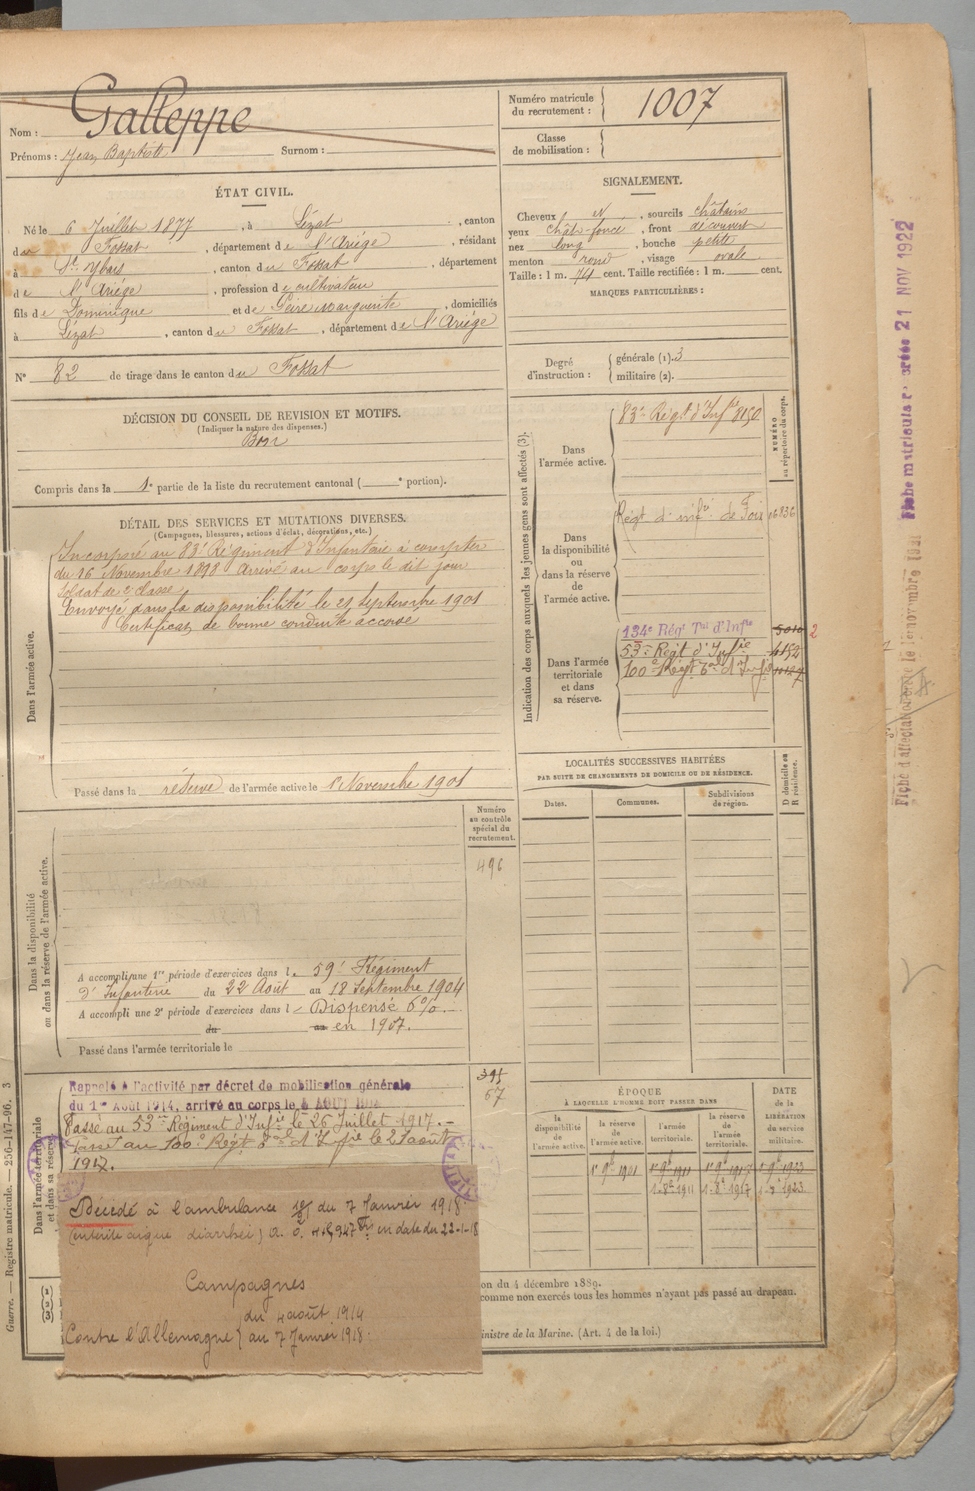 Nom : Galleppe
Prénoms : Jean Baptiste Surnom :
Numéro matricule du recrutement : 1007
Classe de mobilisation :
ÉTAT CIVIL.
Né le 6 Juillet 1877, à Lézat, canton
du Fossat, département de l'Ariége, résidant
à St Ybars, canton du Fossat, département
de l'Ariége, profession de cultivateur
fils de Dominique et de Peire Marguerite, domiciliés
à Lézat, canton du Fossat, département de l'Ariége
N° 82 de tirage dans le canton du Fossat
SIGNALEMENT.
Cheveux et, sourcils châtains
yeux chât. foncé, front découvert
nez long, bouche petite
menton rond, visage ovale
Taille : 1 m. 74 cent. Taille rectifiée : 1 m. cent.
MARQUES PARTICULIÈRES :
Degré d'instruction : générale (1). 3
militaire (2).
DÉCISION DU CONSEIL DE REVISION ET MOTIFS.
(Indiquer la nature des dispenses.)
Bon
Compris dans la 1e partie de la liste du recrutement cantonal ( e portion).
DÉTAIL DES SERVICES ET MUTATIONS DIVERSES.
(Campagnes, blessures, actions d'éclat, décorations, etc.)
Dans l'armée active.
Incorporé au 83e Régiment d'Infantaie à compter
du 16 Novembre 1898 Arrivé au corps le dit jour
Soldat de 2e classe
Envoyé dans la disponibilité le 21 Septembre 1901
Certificat de bonne conduite accordé
Passé dans la réserve de l'armée active le 1er Novembre 1901
Indication des corps auxquels les jeunes gens sont affectés (3).
NUMÉRO au répertoire du corps.
Dans l'armée active.
83e Régt d'Infie 8150
Dans la disponibilité ou dans la réserve de l'armée active.
Régt d'infie de Foix 16836
Dans l'armée territoriale et dans sa réserve.
134e Régt Tal d'Infie 2
53e Régt d'Infie 4152
100e Régt Tal d'Infie
LOCALITÉS SUCCESSIVES HABITÉES
PAR SUITE DE CHANGEMENTS DE DOMICILE OU DE RÉSIDENCE.
Dates. Communes. Subdivisions de région. D domicile ou R résidence.
Numéro au contrôle spécial du recrutement.
496
Dans la disponibilité ou dans la réserve de l'armée active.
A accompli une 1re période d'exercices dans l. 59e Régiment
d'Infanterie du 22 Août au 18 Septembre 1904
A accompli une 2e période d'exercices dans l Dispensé 6%.
du au en 1907.
Passé dans l'armée territoriale le
Dans l'armée territoriale et dans sa réserve
Rappelé à l'activité par décret de mobilisation générale
du 1er Août 1914, arrivé au corps le AOUT
67
Passé au 53me Régiment d'Infie le 26 Juillet 1917.
Passé au 100e Régt Tal d'Infie le 21 août
1917.
Décédé à l'ambulance du 7 Janvier 1918
(entérite aigue diarrhée) en date du 22-1-18
Campagnes
Contre l'Allemagne { du 4 août 1914
au 7 Janvier 1918.
ÉPOQUE
À LAQUELLE L'HOMME DOIT PASSER DANS
DATE de la LIBÉRATION du service militaire.
la disponibilité de l'armée active. la réserve de l'armée active. l'armée territoriale. la réserve de l'armée territoriale.
1er 9bre 1901 1er 9bre 1911 1er 9bre 1917 1er 9bre 1923
1-8e 1911 1-8e 1917 1923
on du 4 décembre 1889.
comme non exercés tous les hommes n'ayant pas passé au drapeau.
inistre de la Marine. (Art. 4 de la loi.)
Guerre. — Registre matricule. — 256-147-96. 3
Fiche matricule créée 21 NOV 1922
Fiche d'affectation novembre